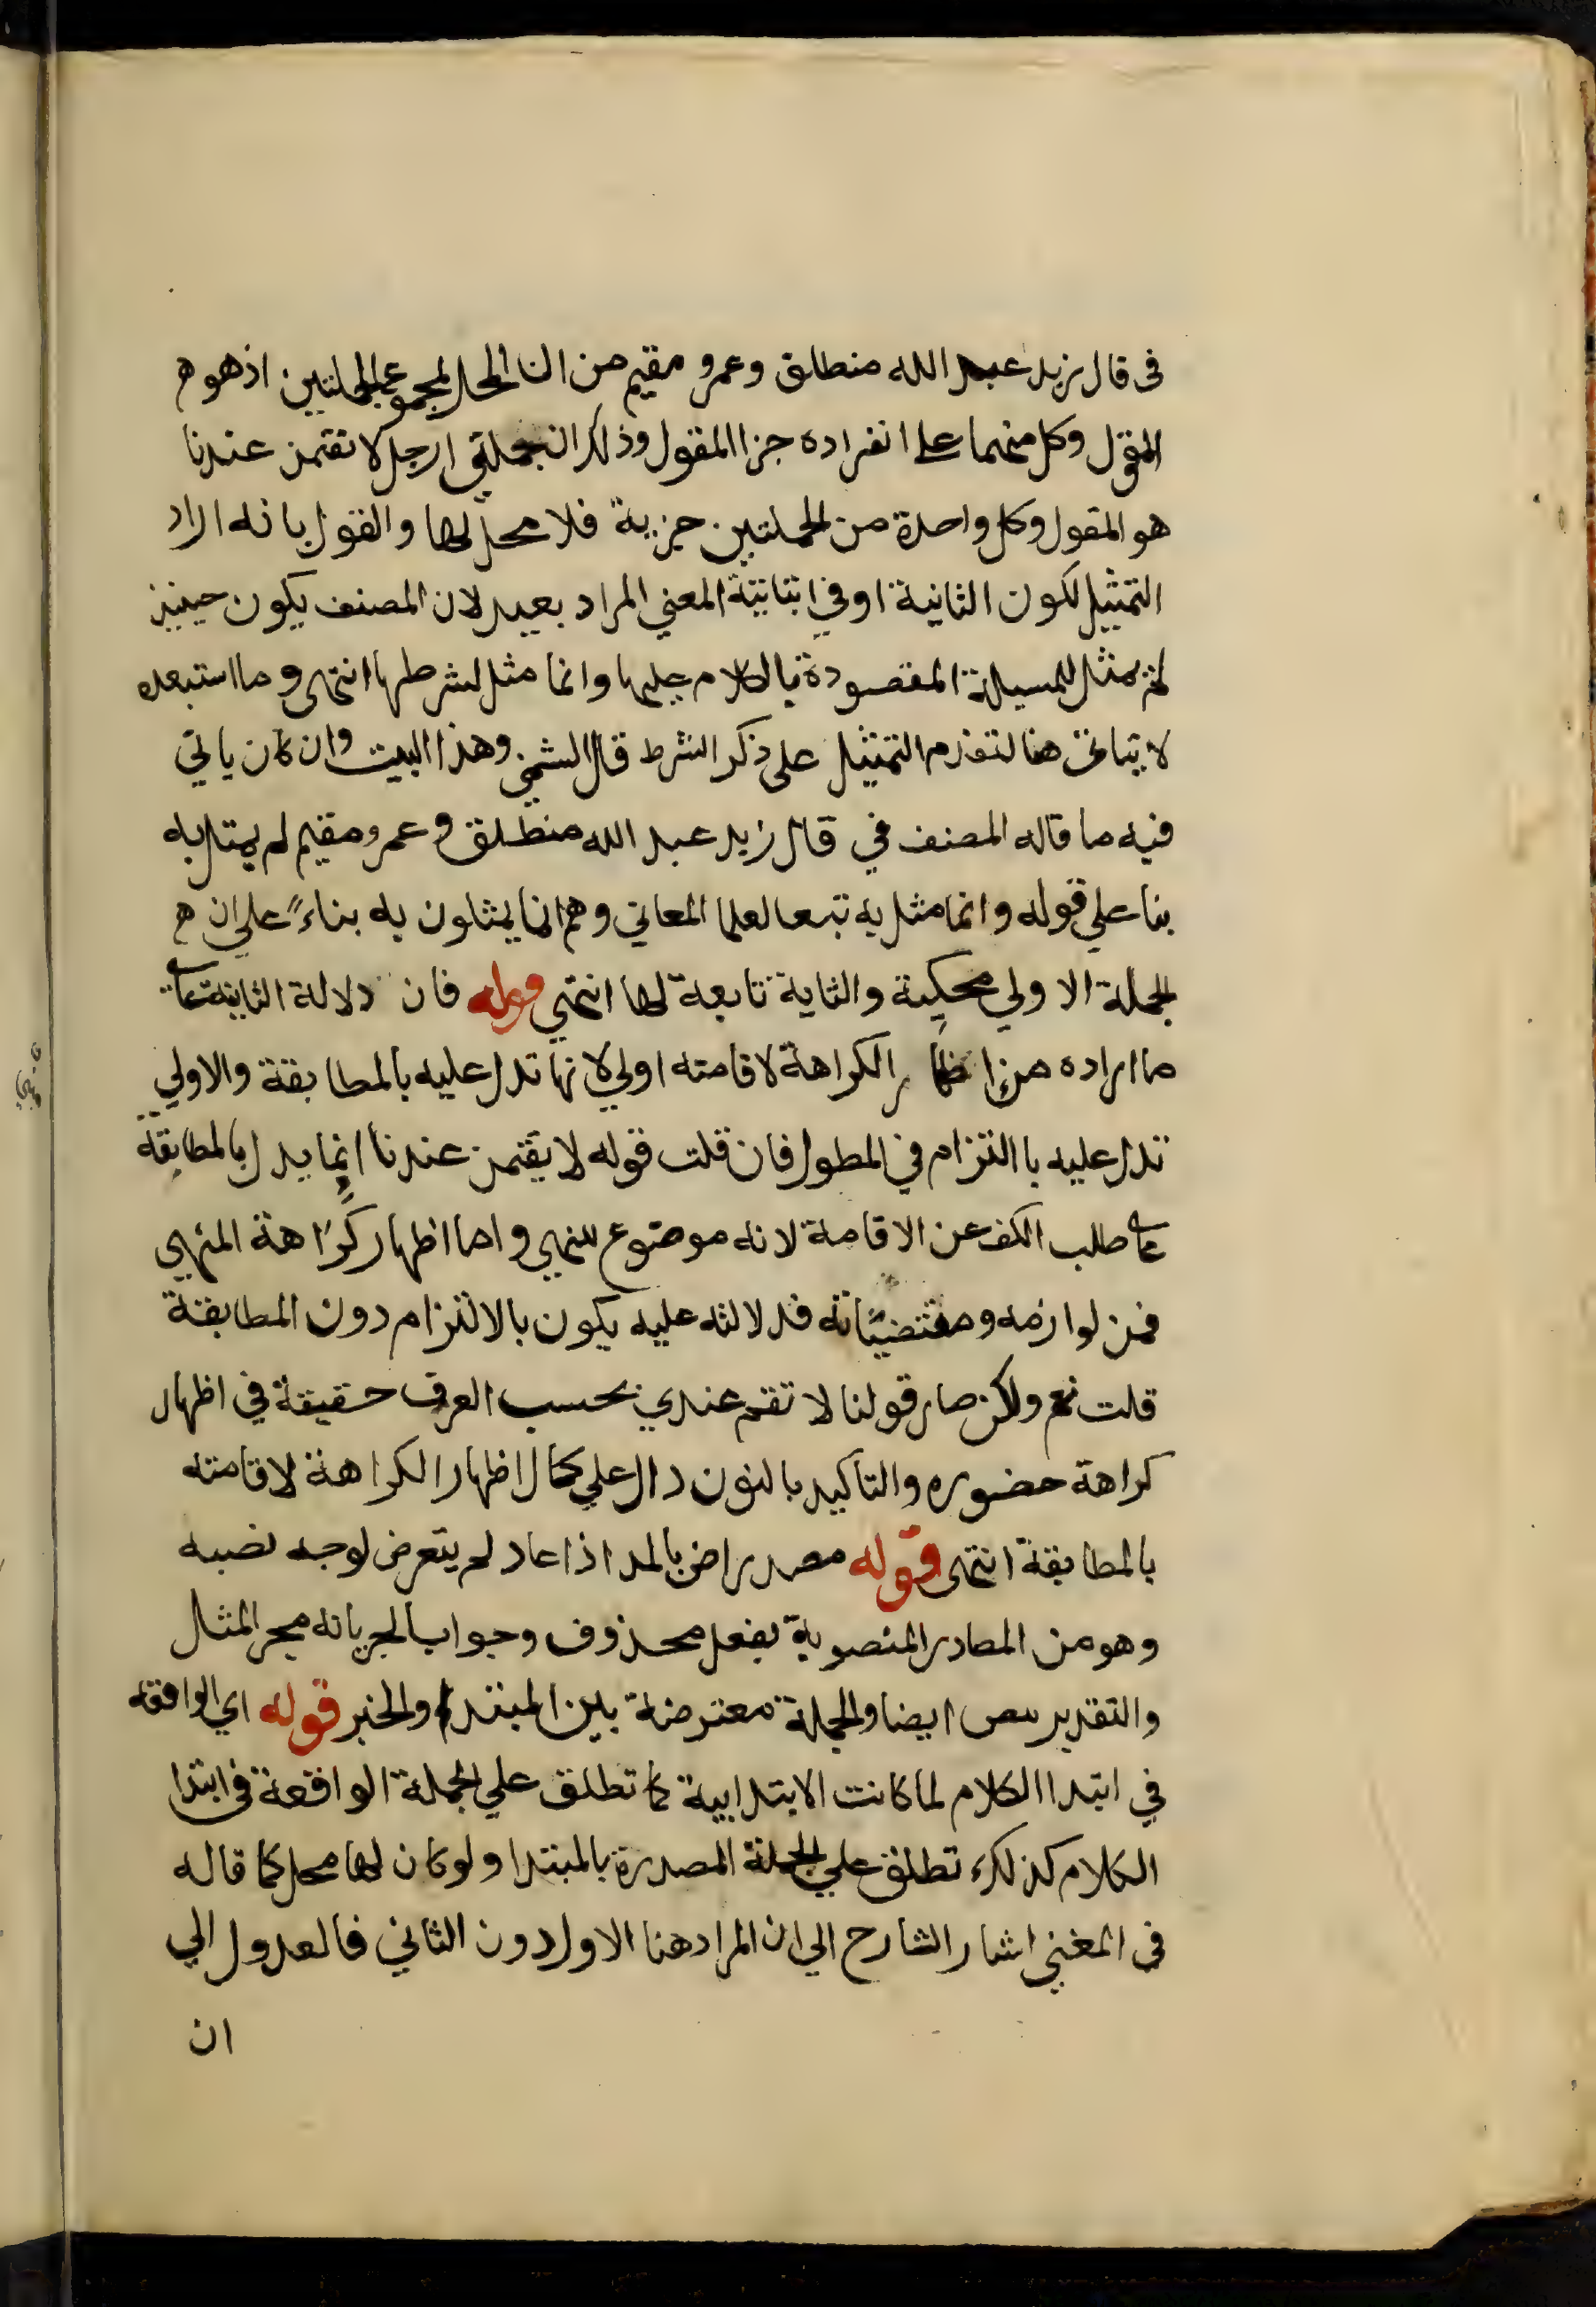 في قال زيد عبد الله منطلق وعمرو مقيم من ان المحل لمجموع الجملتين اذ هو
المقول وكل منهما على انفراده جزا المقول وذلك ان جملتي ارحل لا تقيمن عندنا
هو المقول وكل واحدة من الجملتين جزية فلا محل لها والقول بانه اراد
التمثيل لكون الثانية اوفي بتادية المعني المراد بعيد لان المصنف يكون حينيذ
لم يمثل للمسيلة المقصودة بالكلام عليها وانما مثل لشرطها انتهى وما استبعده
لا يتاتى هنا لتقدم التمثيل على ذكر الشرط قال الشمني وهذا البيت وان كان ياتي
فيه ما قاله المصنف في قال زيد عبد الله منطلق وعمرو مقيم لم يمثل به
بنا علي قوله وانما مثل به تبعا لعلما المعاني وهم انما يمثلون به بناءً علي ان
الجملة الاولي محكية والثاية تابعة لها انتهي قوله فان دلالة الثانية على
ما اراده من اظهار الكراهة لاقامته اولي لانها تدل عليه بالمطابقة والاولي
تدل عليه باالتزام في المطول فان قلت قوله لا يقيمن عندنا انما يدل بالمطابقة
على طلب الكف عن الاقامة لانه موضوع للنهي واما اظهار كراهة المنهي
فمن لوازمه ومقتضياته فدلالته عليه يكون بالالتزام دون المطابقة
قلت نعم ولكن صار قولنا لا تقم عندي بحسب العرف حقيقة في اظهار
كراهة حضوره والتاكيد بالنون دال علي كمال اظهار الكراهة لاقامته
بالمطابقة انتهى قوله مصدر اض بالمد اذا عاد لم يتعرض لوجه نصبه
وهو من المصادر المنصوبة بفعل محذوف وجوبا لجريانه مجر المثال
والتقدير ايضا والجملة معترضة بين المبتدا والخبر قوله اي الواقعة
في ابتدا الكلام لما كانت الابتدايية كما تطلق علي الجملة الواقعة في ابتدا
الكلام كذلك تطلق علي الجملة المصدرة بالمبتدا ولو كان لها محل كما قاله
في المغني اشار الشارح الي ان المراد هنا الاول دون الثاني فالعدول الي
ان